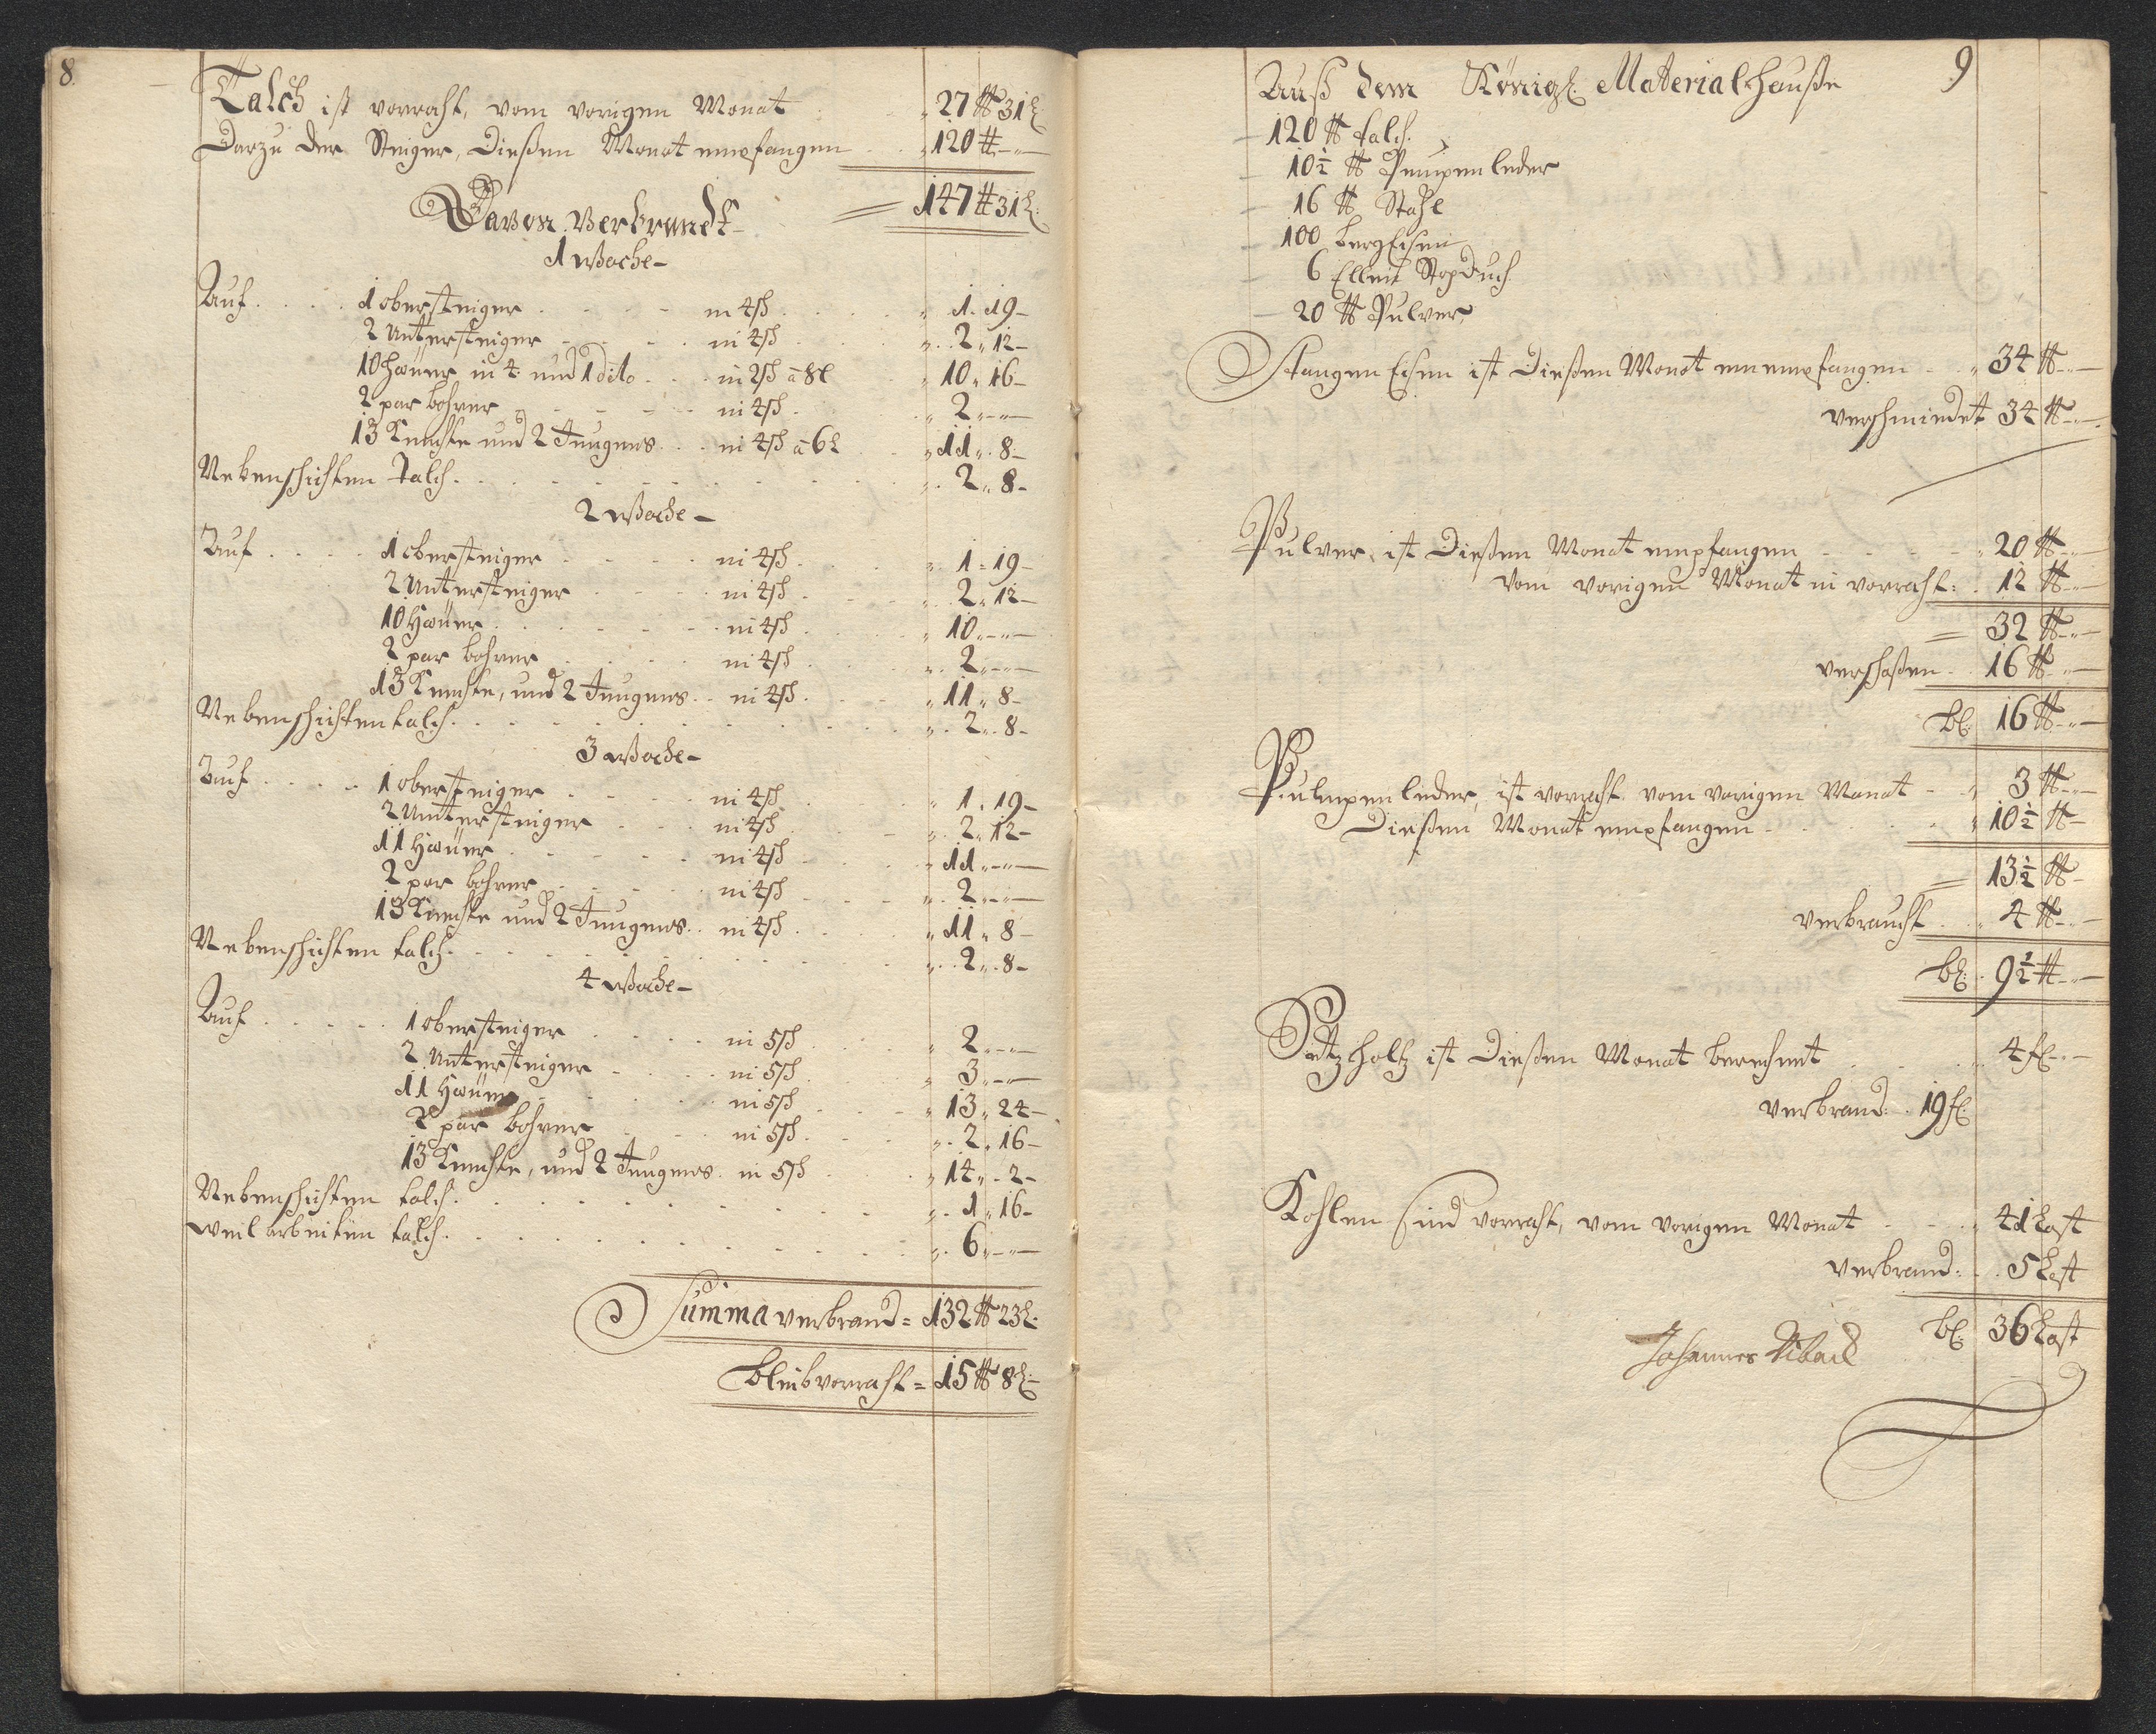 8.
Talch ist vorraht, vom vorigen Monat " 27 ℔ 31 L:
Darzu der Steiger, diesßen Monat empfangen " 120 ℔ - " -
147 ℔ 31 L:
Davon Verbrandt
1 wßoche -
Auf . . . . 1 obersteiger . . . in 4 sch . . . " 1. 19 -
2 Untersteiger . . . in 4 sch . . . " 2 " 12 -
10 Haüer in 4. und 1 dito . . . in 2 sch â 8 l " 10 " 16 -
2 par bohrer . . . in 4 sch . . . " 2 " - " -
13 Knechte und 2 Jungens . . . in 4 sch â 6 L " 11 " 8 -
Nebenschichten Talch . . . " 2 " 8 -
2 wßoche -
Auf . . . . 1 obersteiger . . . in 4 sch . . . " 1 " 19 -
2 Untersteiger . . . in 4 sch . . . " 2 " 12 -
10 Haüer . . . in 4 sch . . . " 10 " - " -
2 par bohrer . . . in 4 sch . . . " 2 " - " -
13 Knechte, und 2 Jungens . . in 4 sch . . . " 11 " 8 -
Nebenschichten talch . . . " 2 " 8 -
3 wßoche -
Auf . . . . 1 obersteiger . . . in 4 sch . . . " 1 " 19 -
2 Untersteiger . . . in 4 sch . . . " 2 " 12 -
11 Haüer . . . in 4 sch . . . " 11 " - " -
2 par bohrer . . . in 4 sch . . . " 2 " - " -
13 Knechte und 2 Jungens . . in 4 sch . . . " 11 " 8 -
Nebenschichten talch . . . " 2 " 8 -
4 wßoche -
Auf . . . . 1 obersteiger . . . in 5 sch . . . " 2 " - " -
2 Untersteiger . . . in 5 sch . . . " 3 " - " -
11 Haüer . . . in 5 sch . . . " 13 " 24 -
2 par bohrer . . . in 5 sch . . . " 2 " 16 -
13 Knechte, und 2 Jungens . in 5 sch . . . " 14 " 2 -
Nebenschichten talch . . . " 1 " 16 -
weil arbeiten talch . . . " 6 " - " -
Summa verbrand = 132 ℔ 23 L:
bleib vorraht = 15 ℔ 8 L:
9
Auß dem Königl. Materialhauße
- 120 ℔ talch.
- 10½ ℔ Pumpenleder
- 16 ℔ Stahl
- 100 bergEisen
- 6 Ellen StopDuch
- 20 ℔ Pulver
Stangen Eisen ist dießen Monat empfangen . . " 34 ℔ - " -
verschmiedet 34 ℔ - " -
Pulver, ist dießen Monat empfangen . . . " 20 ℔ - " -
vom vorigen Monat in vorraht: . 12 ℔ - " -
= 32 ℔ - " -
verschoßen . . 16 ℔ - " -
bl: 16 ℔ - " -
Pulmpenleder, ist vorraht vom vorigen Monat . . " 3 ℔ - " -
Dießen Monat empfangen . . . " 10½ ℔ -
= 13½ ℔ -
verbraucht . . " 4 ℔ - " -
bl: . 9½ ℔ - " -
Setzholtz ist dießen Monat berechnet . . . " 4 f - " -
verbrand: . 19 f
Kohlen sind vorraht, vom vorigen Monat . . . " 41 Last
verbrand: . . 5 Last
bl: 36 Last
Johannes